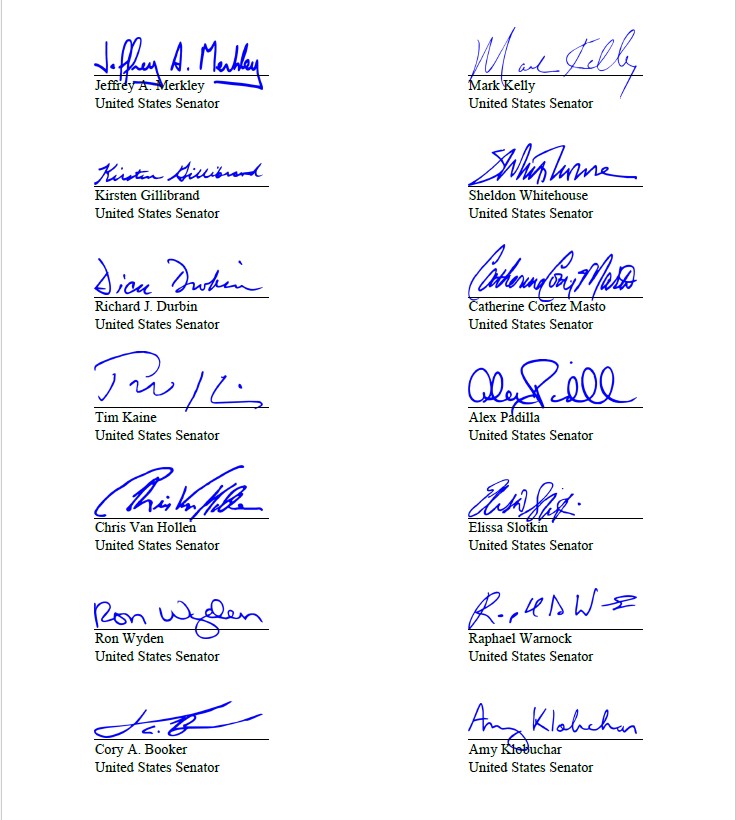 Jeffrey A. Merkley
Jeffrey A. Merkley
United States Senator
Mark Kelly
Mark Kelly
United States Senator
Kirsten Gillibrand
Kirsten Gillibrand
United States Senator
Sheldon Whitehouse
United States Senator
Dick Durbin
Richard J. Durbin
United States Senator
Catherine Cortez Masto
Catherine Cortez Masto
United States Senator
Tim Kaine
United States Senator
Alex Padilla
Alex Padilla
United States Senator
Chris Van Hollen
Chris Van Hollen
United States Senator
Elissa Slotkin
United States Senator
Ron Wyden
Ron Wyden
United States Senator
Raphael Warnock
United States Senator
Cory A. Booker
United States Senator
Amy Klobuchar
Amy Klobuchar
United States Senator